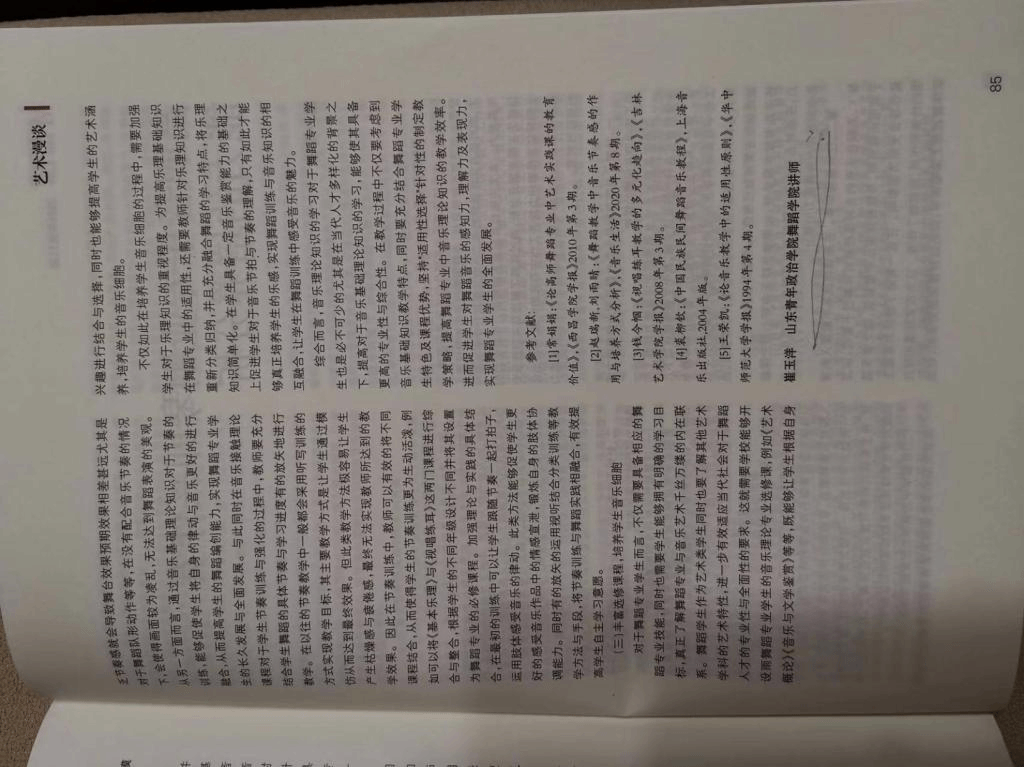 艺术漫谈
乏节奏感就会导致舞台效果预期效果相差甚远尤其是
对于舞蹈队形动作等等,在没有配合音乐节奏的情况
下,会使得画面较为凌乱,无法达到舞蹈表演的美观。
从另一方面而言,通过音乐基础理论知识对于节奏的
训练,能够促使学生将自身的律动与音乐更好的进行
融合,从而提高学生的舞蹈编创能力,实现舞蹈专业学
生的长久发展与全面发展。与此同时在音乐接触理论
课程对于学生节奏训练与强化的过程中,教师要充分
结合学生舞蹈的具体节奏与学习进度有的放矢地进行
教学。在以往的节奏教学中一般都会采用听写训练的
方式实现教学目标,其主要教学方式是让学生通过模
仿从而达到最终效果。但此类教学方法极容易让学生
产生枯燥感与疲倦感,最终无法实现教师所达到的教
学效果。因此在节奏训练中,教师可以有效的将不同
课程结合,从而使得学生的节奏训练更为生动活泼,例
如可以将《基本乐理》与《视唱练耳》这两门课程进行综
合与整合,根据学生的不同年级设计不同并将其设置
为舞蹈专业的必修课程。加强理论与实践的具体结
合,在最初的训练中可以让学生跟随节奏一起打拍子,
运用肢体感受音乐的律动。此类方法能够促使学生更
好的感受音乐作品中的情感宣泄,锻炼自身的肢体协
调能力。同时有的放矢的运用视听结合分类训练等教
学方法与手段,将节奏训练与舞蹈实践相融合,有效提
高学生自主学习意愿。
(三)丰富选修课程,培养学生音乐细胞
对于舞蹈专业学生而言,不仅需要具备相应的舞
蹈专业技能,同时也需要学生能够拥有明确的学习目
标,真正了解舞蹈专业与音乐艺术千丝万缕的内在联
系。舞蹈学生作为艺术类学生同时也要了解其他艺术
学科的艺术特性,进一步有效适应当代社会对于舞蹈
人才的专业性与全面性的要求。这就需要学校能够开
设面舞蹈专业学生的音乐理论专业选修课,例如《艺术
概论》《音乐与文学鉴赏》等等,既能够让学生根据自身
兴趣进行结合与选择,同时也能够提高学生的艺术涵
养,培养学生的音乐细胞。
不仅如此在培养学生音乐细胞的过程中,需要加强
学生对于乐理知识的重视程度。为提高乐理基础知识
在舞蹈专业中的适用性,还需要教师针对乐理知识进行
重新分类归纳,并且充分融合舞蹈的学习特点,将乐理
知识简单化。在学生具备一定音乐鉴赏能力的基础之
上促进学生对于音乐节拍与节奏的理解,只有如此才能
够真正培养学生的乐感,实现舞蹈训练与音乐知识的相
互融合,让学生在舞蹈训练中感受音乐的魅力。
综合而言,音乐理论知识的学习对于舞蹈专业学
生也是必不可少的尤其是在当代人才多样化的背景之
下,提高对于音乐基础理论知识的学习,能够使其具备
更高的专业性与综合性。在教学过程中不仅要考虑到
音乐基础知识教学特点,同时要充分结合舞蹈专业学
生特色及课程优势,坚持“适用性选择”针对性的制定教
学策略,提高舞蹈专业中音乐理论知识的教学效率。
进而促进学生对舞蹈音乐的感知力,理解力及表现力,
实现舞蹈专业学生的全面发展。
参考文献:
[1]常娟娟:《论高师舞蹈专业中艺术实践课的教育
价值》,《西昌学院学报》2010年第3期。
[2]赵瑞新,刘雨晴:《舞蹈教学中音乐节奏感的作
用与培养方式分析》,《音乐生活》2020年第8期。
[3]钱令帼:《视唱练耳教学的多元化趋向》,《吉林
艺术学院学报》2008年第3期。
[4]裘柳钦:《中国民族民间舞蹈音乐教程》,上海音
乐出版社,2004年版。
[5]王荣凯:《论音乐教学中的适用性原则》,《华中
师范大学学报》1994年第4期。
崔玉洋 山东青年政治学院舞蹈学院讲师
85